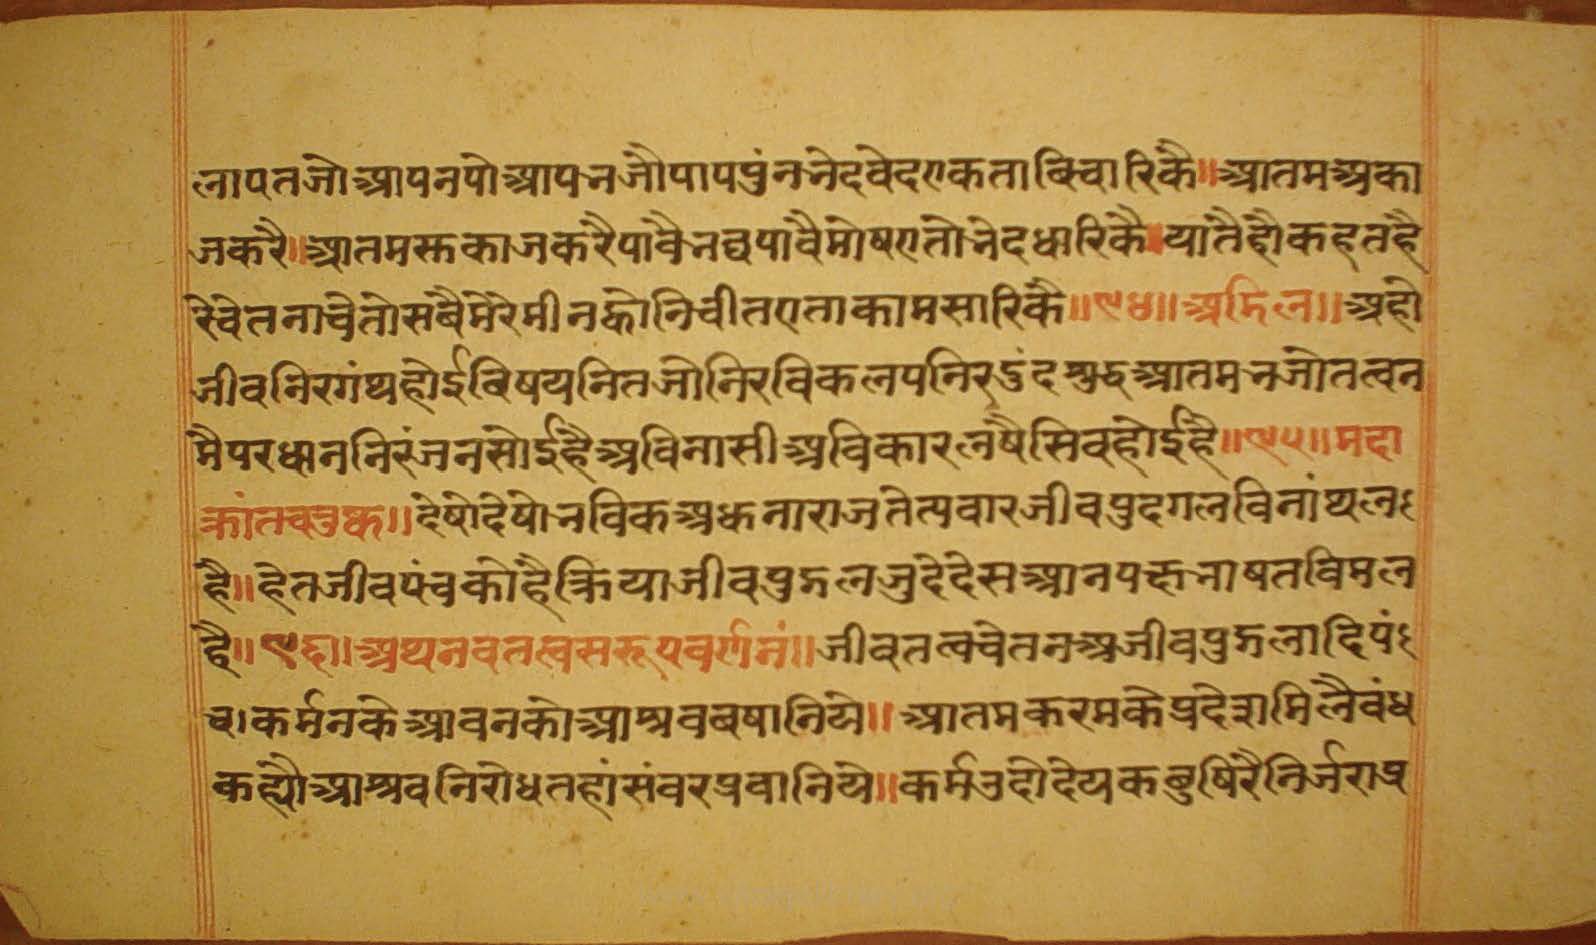 लापतजोआपनपोआपनजौपापपुंननेदवेदएकताबिचारिकै॥आतमअका
जकरै॥आतमसुकाजकरैपावैनद्यपावैमोषएतोनेदधारिकै॥यातैहौकहतहै
रेचेतनाचेतोसबैमेरेमीनकोनिचीतएताकामसारिकै॥९४॥अडिल॥अहो
जीवनिरगंथहोईबिषयनितजोनिरविकलपनिरदुंदशुद्धआतमनजोतत्वन
मैपरधाननिरंजनसोईहैअविनासीअविकारलषैसिवहोईहै॥९५॥मदा
क्रांतचतुष्क॥देषोदेषोनविकअधनाराजतेत्यवारजीवपुदगलविनांथल
है॥हेतजीवपंचकोहैक्रियाजीवपुद्गलजुदेदेसआनपरूनाषतविमल
है॥९६॥अथनवतत्वसरूपवर्णनं॥जीवतत्वचेतनअजीवपुद्गलादिपं
च।कर्मनकेआवनकोआश्रवबषानिये॥आतमकरमकेप्रदेशमिलैबंध
कह्यौआश्रवनिरोधतहांसंवरप्रवानिये॥कर्मउदोदेयकछुषिरैनिर्जराप्र